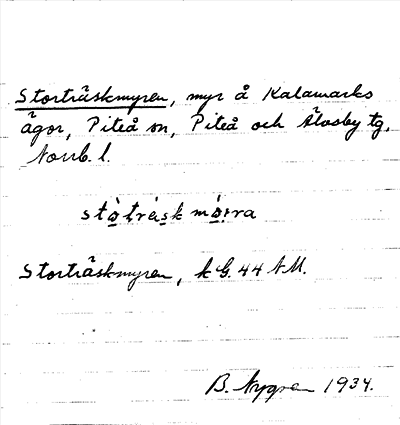 Storträskmyren, myr å Kalamarks
ägor, Piteå sn, Piteå och Älvsby tg,
Norrb. l.
stò̤träsk mò̤rra
Storträskmyren, k G. 44 N.M.
B. Nygren 1934.